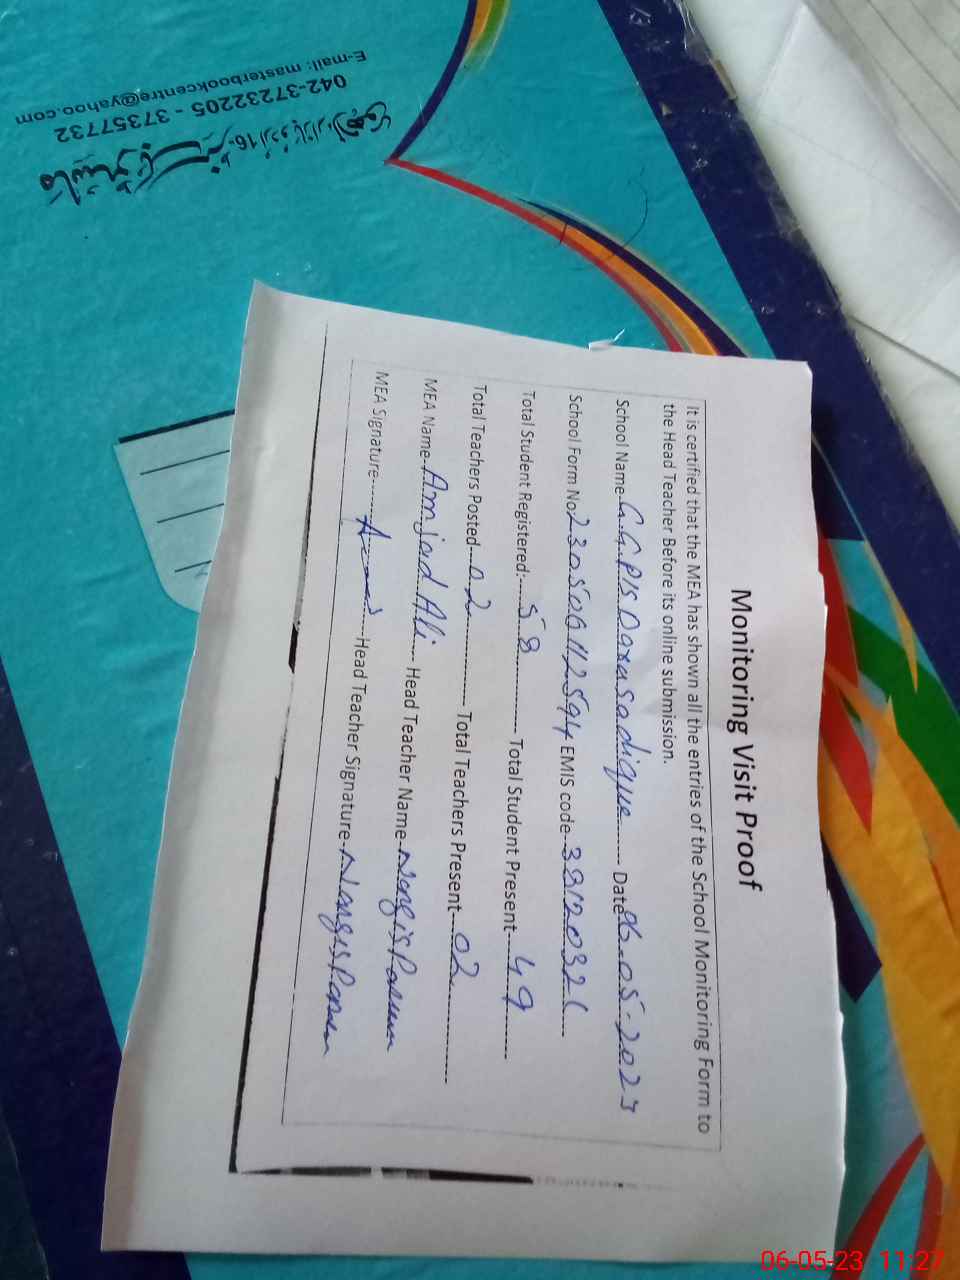 Monitoring Visit Proof
It is certified that the MEA has shown all the entries of the School Monitoring Form to
the Head Teacher Before its online submission.
School Name G.G.P/S Darasadique Date 06.05.2023
School Form No 2305060112594 EMIS code 38120321
Total Student Registered: 58 Total Student Present 49
Total Teachers Posted 02 Total Teachers Present 02
MEA Name Amjad Ali Head Teacher Name Nargis Parveen
MEA Signature Head Teacher Signature Nargis Parveen
16
042-37232205 - 37357732
E-mail: masterbookcentre@yahoo.com
06-05-23 11:27